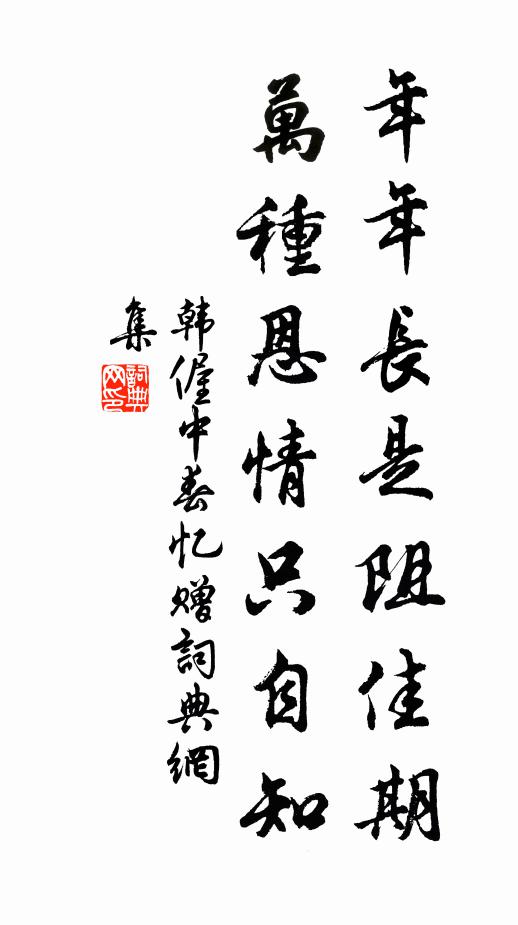 年年長是阻佳期
萬種恩情只自知
韩偓中春忆赠詞典網
集
詞典网印